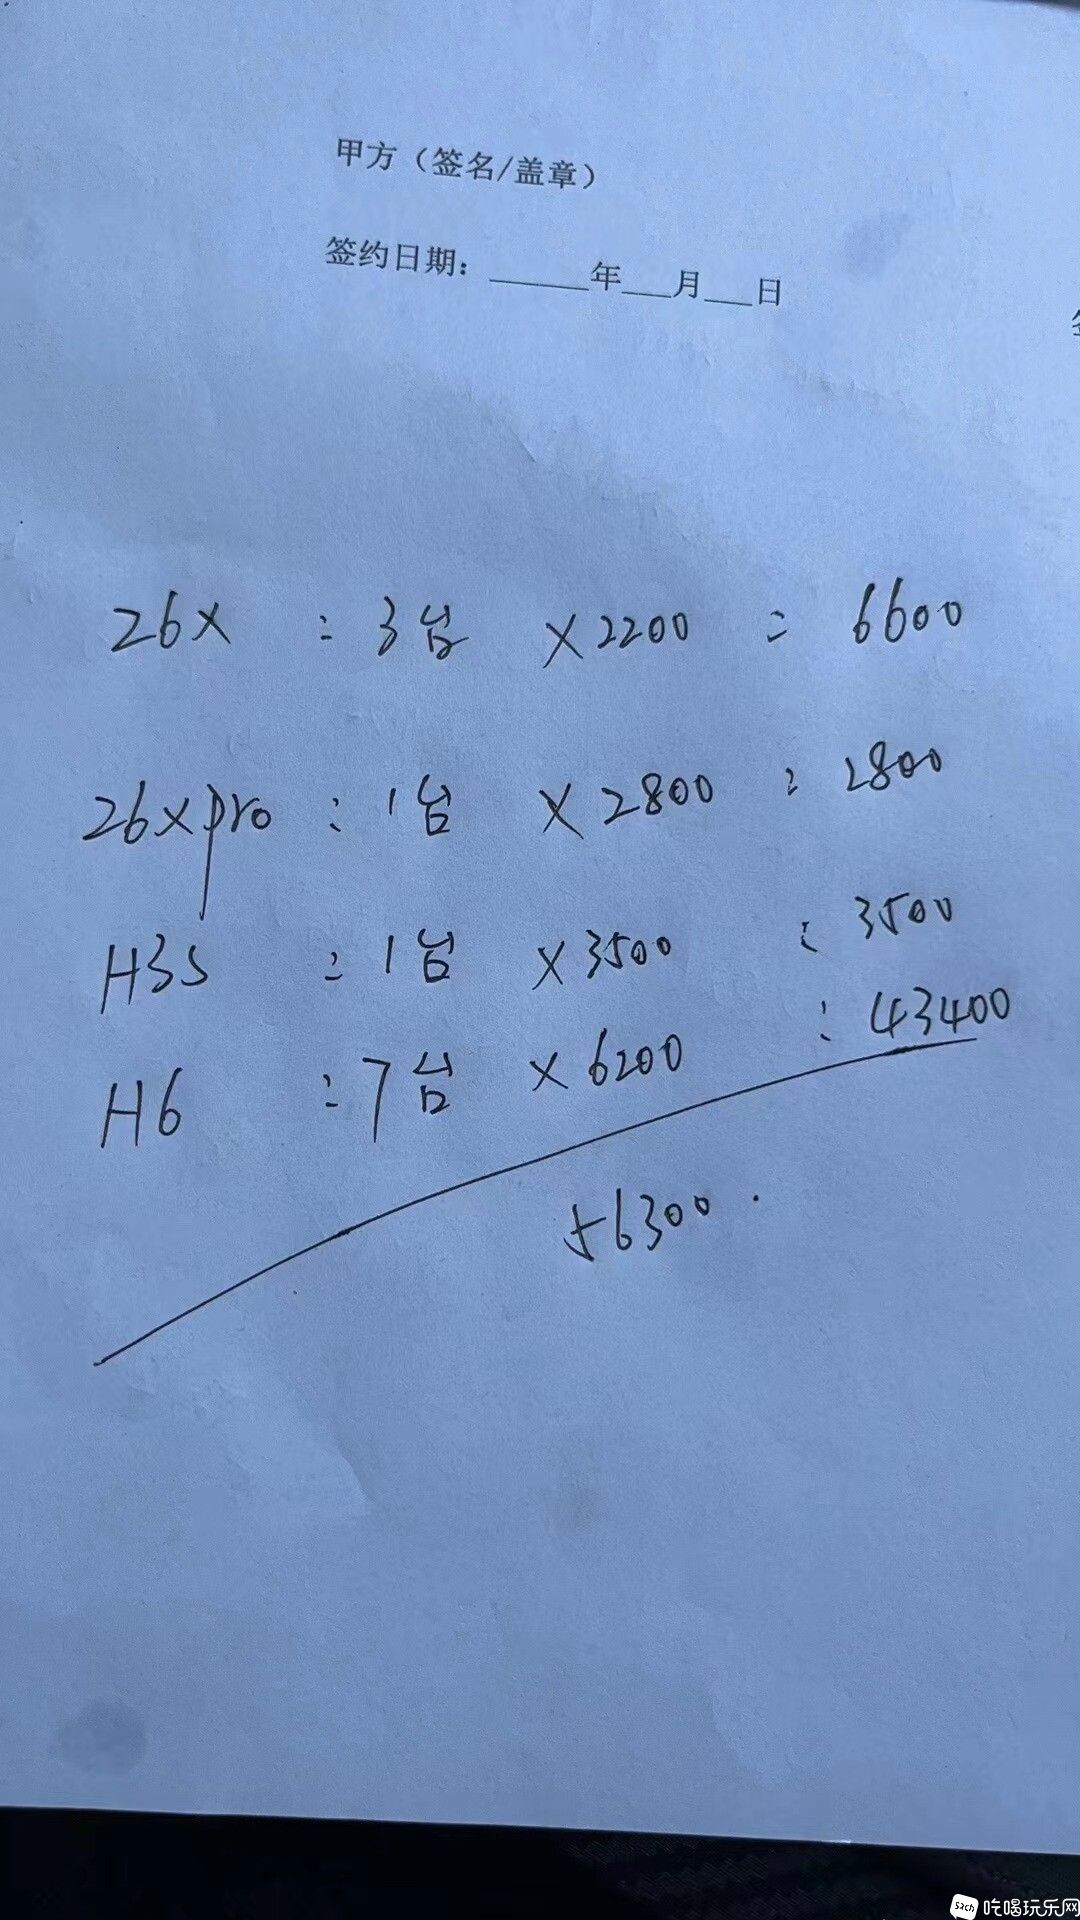 甲方（签名/盖章）
签约日期：______年___月___日
26X : 3台 ×2200 = 6600
26xpro : 1台 ×2800 : 2800
H3S : 1台 ×3500 : 3500
H6 : 7台 ×6200 : 43400
56300.
52ch 吃喝玩乐网